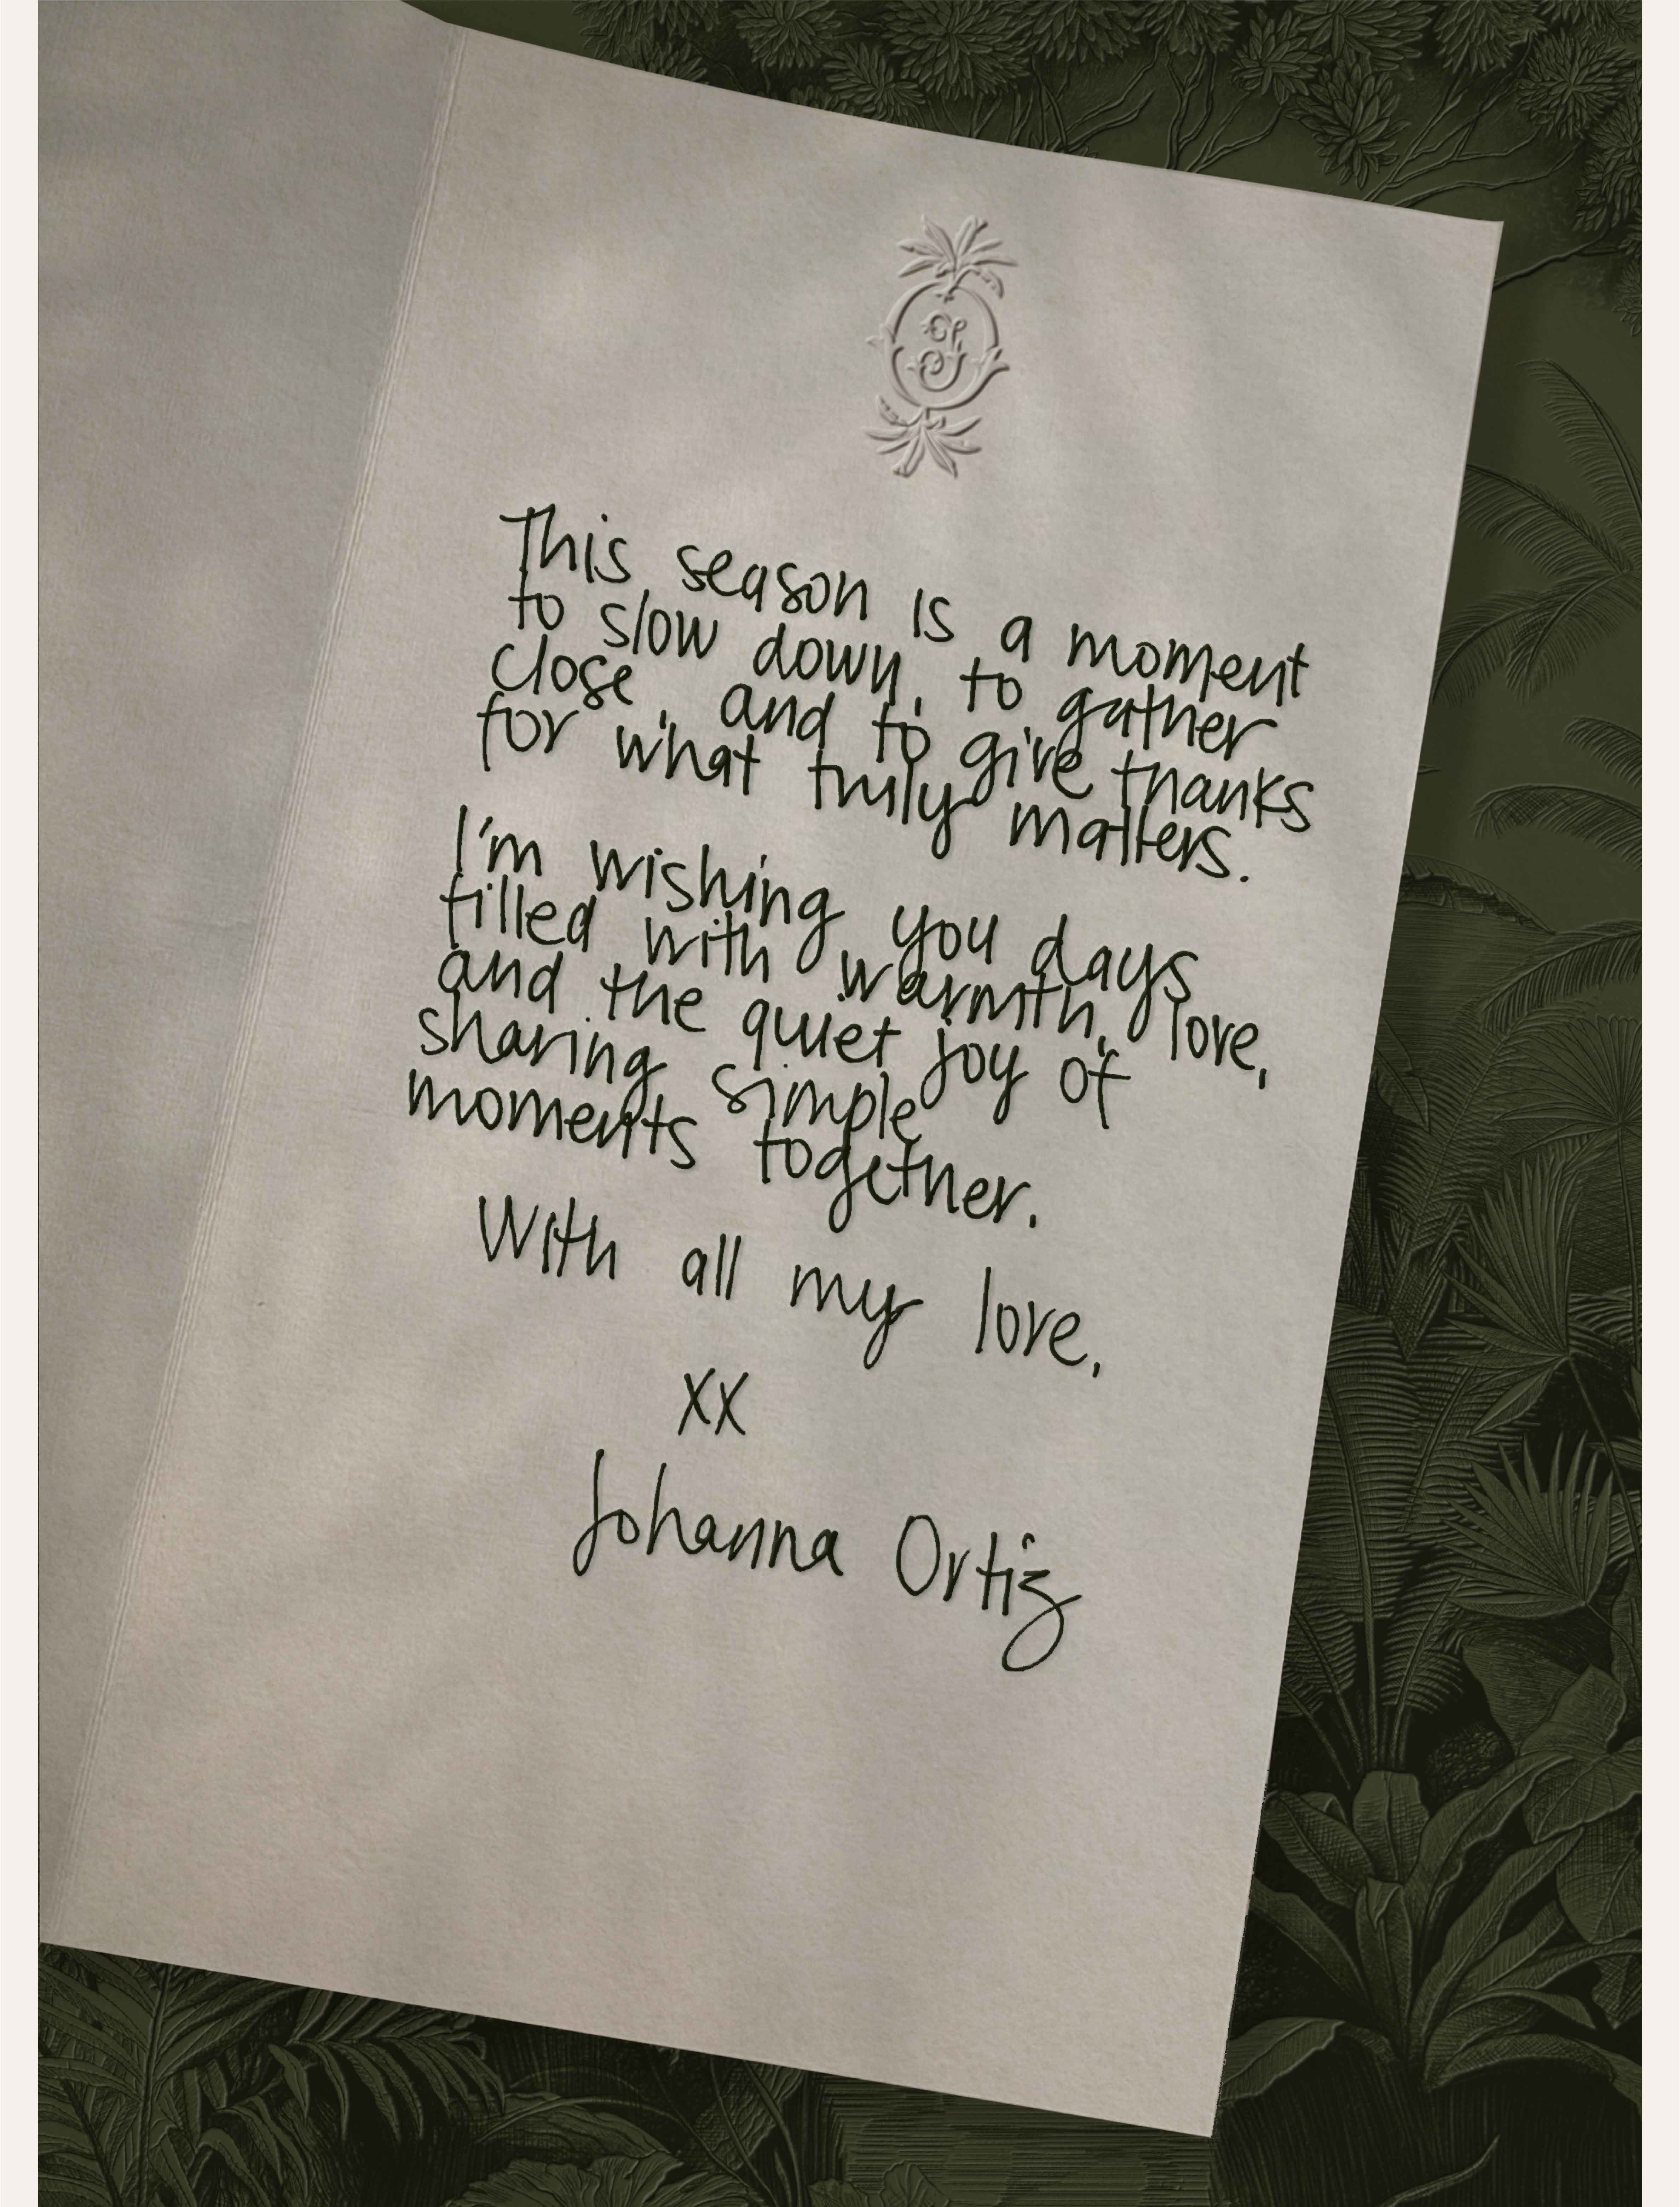 This season is a moment
to slow down, to gather
close, and to give thanks
for what truly matters.
I'm wishing you days
filled with warmth, love,
and the quiet joy of
sharing simple
moments together.
With all my love,
xx
Johanna Ortiz